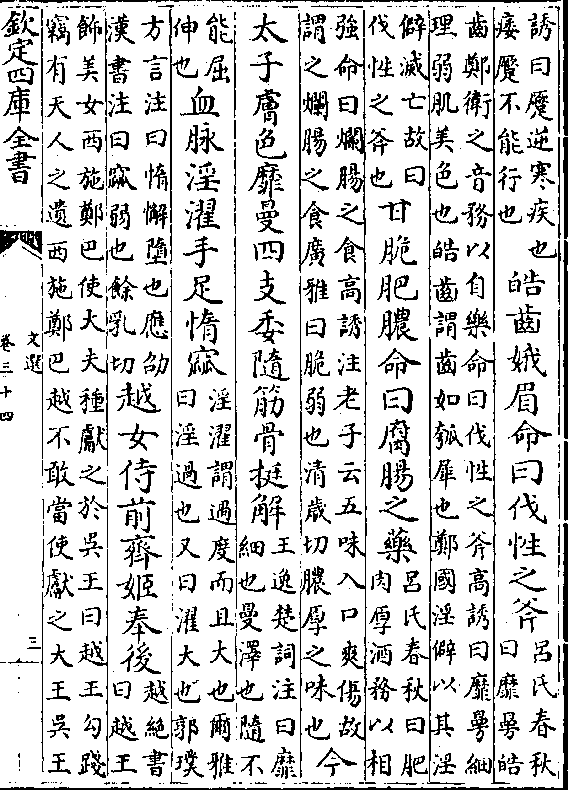 誘曰蹷逆寒疾也痿蹷不能行也皓齒娥眉命曰伐性之斧呂氏春秋曰靡曼皓
齒鄭衛之音務以自樂命曰伐性之斧高誘曰靡曼細理弱肌美色也皓齒謂齒如瓠犀也鄭國淫僻以其淫
僻滅亡故曰伐性之斧也甘脆肥膿命曰腐腸之藥呂氏春秋曰肥肉厚酒務以相
強命曰爛腸之食高誘注老子云五味入口爽傷故謂之爛腸之食廣雅曰脆弱也清歲切膿厚之味也今
太子膚色靡曼四支委隨筋骨挺解王逸楚詞注曰靡細也曼澤也隨不
能屈伸也血脉淫濯手足惰窳淫濯謂過度而且大也爾雅曰淫過也又曰濯大也郭璞
方言注曰惰懈墮也應劭漢書注曰窳弱也餘乳切越女侍前齊姬奉後越絕書曰越王
飾美女西施鄭巴使大夫種獻之於吳王曰越王勾踐竊有天人之遺西施鄭巴越不敢當使獻之大王吳王
欽定四庫全書
文選
卷三十四
三